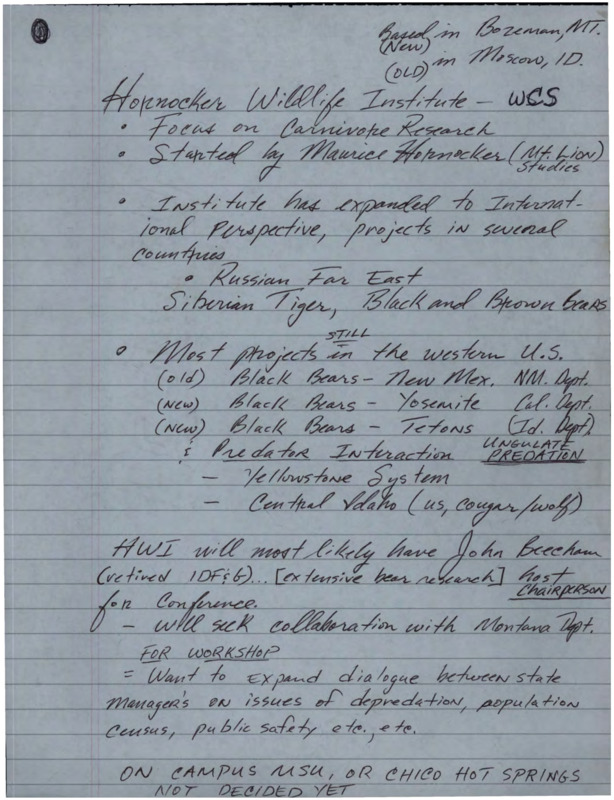 Based in Bozeman, MT.
(New)
(OLD) in Moscow, ID.
Hornocker Wildlife Institute - WCS
• Focus on Carnivore Research
• Started by Maurice Hornocker (Mt. Lion)
Studies
• Institute has expanded to Internat-
ional Perspective, projects in several
countries
• Russian Far East
Siberian Tiger, Black and Brown Bears
STILL
• Most projects in the western U.S.
(old) Black Bears - New Mex. NM. Dept.
(New) Black Bears - Yosemite Cal. Dept.
(New) Black Bears - Tetons (Id. Dept)
& Predator Interaction UNGULATE PREDATION
- Yellowstone System
- Central Idaho (us, cougar/wolf)
HWI will most likely have John Beecham
(retired IDF&G)... [extensive bear research] host
CHAIRPERSON
for Conference.
- Will seek collaboration with Montana Dept.
FOR WORKSHOP
= Want to expand dialogue between state
manager's on issues of depredation, population
census, public safety etc., etc.
ON CAMPUS MSU, OR CHICO HOT SPRINGS
NOT DECIDED YET